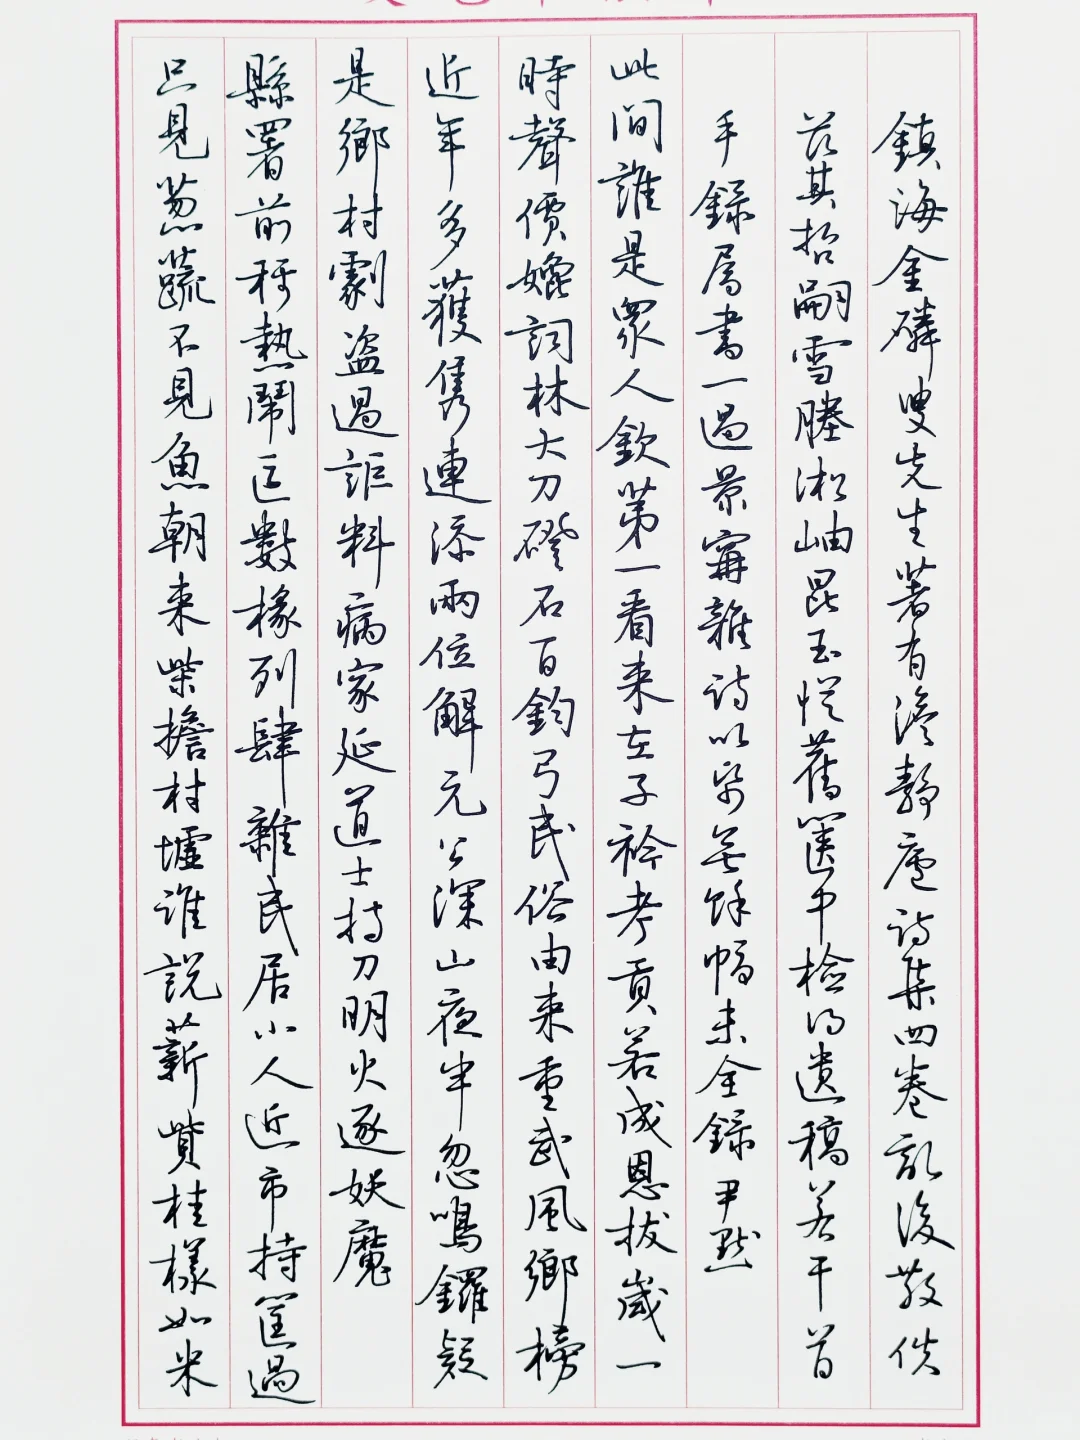 鎮海金磷叟先生著有澹靜廬詩集四卷亂後散佚
茲其哲嗣雪塍淞岫昆玉從舊篋中檢得遺稿若干首
手錄屬書一過景甯雜詩以紙無餘幅未全錄尹默
此間誰是眾人欽第一看來在子衿考貢若成恩拔歲一
時聲價媲詞林大刀磴石百鈞弓民俗由來重武風鄉榜
近年多獲雋連添兩位解元公深山夜半忽鳴鑼疑
是鄉村劇盜過詎料病家延道士持刀明火逐妖魔
縣署前稱熱鬧區數椽列肆雜民居小人近市持筐過
只見蔥蔬不見魚朝來柴擔村墟誰說薪貲桂樣如米